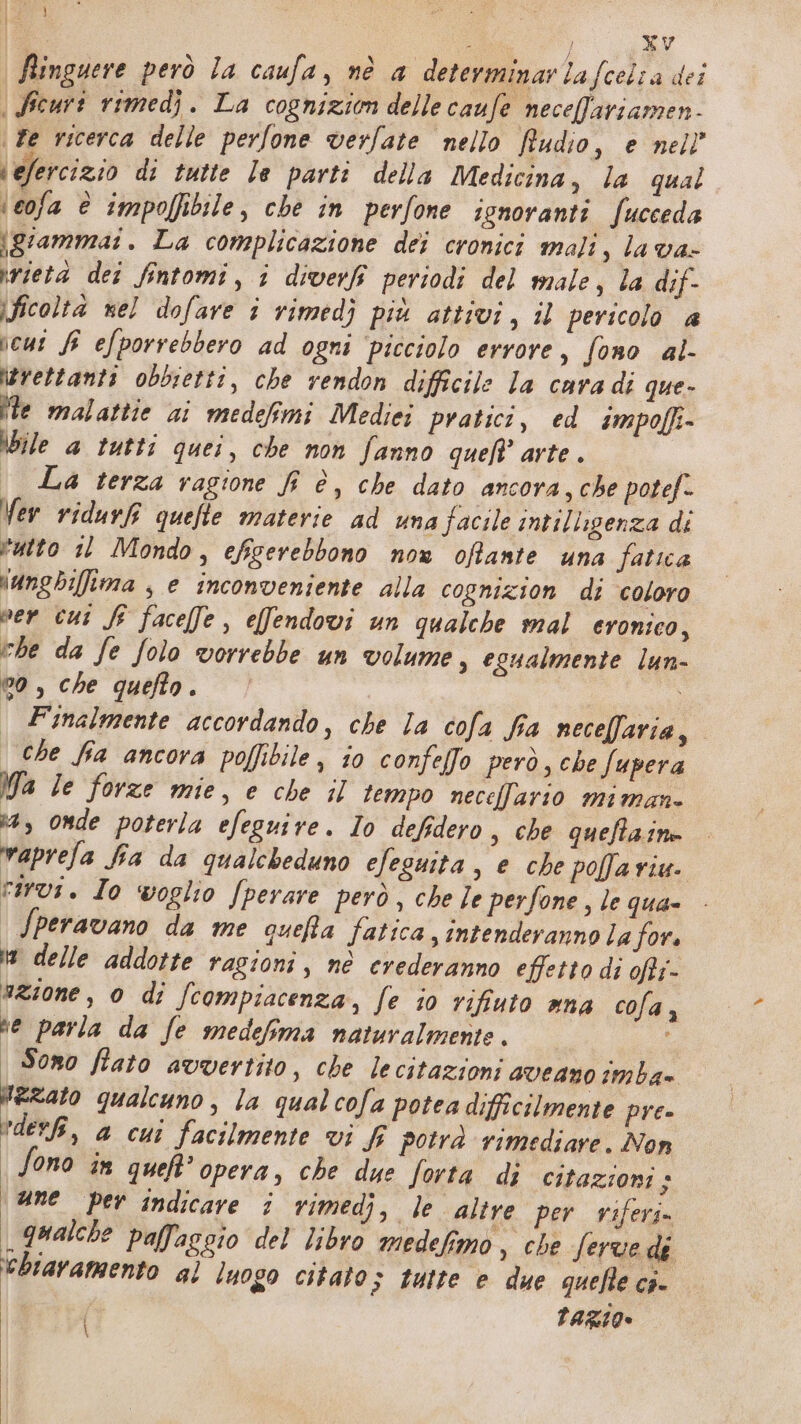 XV
ſtinguere però la cauſa, nè a determinar la ſcelta dei
ſicuri rimedj. La cognizion delle cauſe neceſſariamen-
te ricerca delle perſone verſate nello ſtudio, e nell'
eſercizio di tutte le parti della Medicina, la qual
coſa è impoſſibile, che in perſone ignoranti ſucceda
giammai. La complicazione dei cronici mali, la va-
rietà dei ſintomi, i diverſi periodi del male, la dif-
ficoltà nel doſare i rimedj più attivi, il pericolo a
cui ſi eſporrebbero ad ogni picciolo errore, ſono al-
trettanti obbietti, che rendon difficile la cura di que-
ſte malattie ai medeſimi Medici pratici, ed impoſſi-
bile a tutti quei, che non ſanno queſt' arte.
La terza ragione ſi è, che dato ancora, che poteſ-
ſer ridurſi queſte materie ad una facile intilligenza di
tutto il Mondo, eſigerebbono non oſtante una fatica
lunghiſſima, e inconveniente alla cognizion di coloro
per cui ſi faceſſe, eſſendovi un qualche mal cronico,
che da ſe ſolo vorrebbe un volume, egualmente lun-
go, che queſto.
Finalmente accordando, che la coſa ſia neceſſaria,
che ſia ancora poſſibile, io confeſſo però, che ſupera
ſſa le forze mie, e che il tempo neceſſario mi man-
ca, onde poterla eſeguire. Io deſidero, che queſta in-
trapreſa ſia da qualcheduno eſeguita, e che poſſa riu-
ſcirvi. Io voglio ſperare però, che le perſone, le qua-
ſperavano da me queſta fatica, intenderanno la for-
za delle addotte ragioni, nè crederanno effetto di oſti-
nazione, o di ſcompiacenza, ſe io rifiuto una coſa,
che parla da ſe medeſima naturalmente.
Sono ſtato avvertito, che le citazioni aveano imba-
razzato qualcuno, la qual coſa potea difficilmente pre-
vderſi, a cui facilmente vi ſi potrà rimediare. Non
ſono in queſt' opera, che due ſorta di citazioni;
une per indicare i rimedj, le altre per riferi-
qualche paſſaggio del libro medeſimo, che ſerve di
ſchiaramento al luogo citato; tutte e due queſte ci-
tazio-